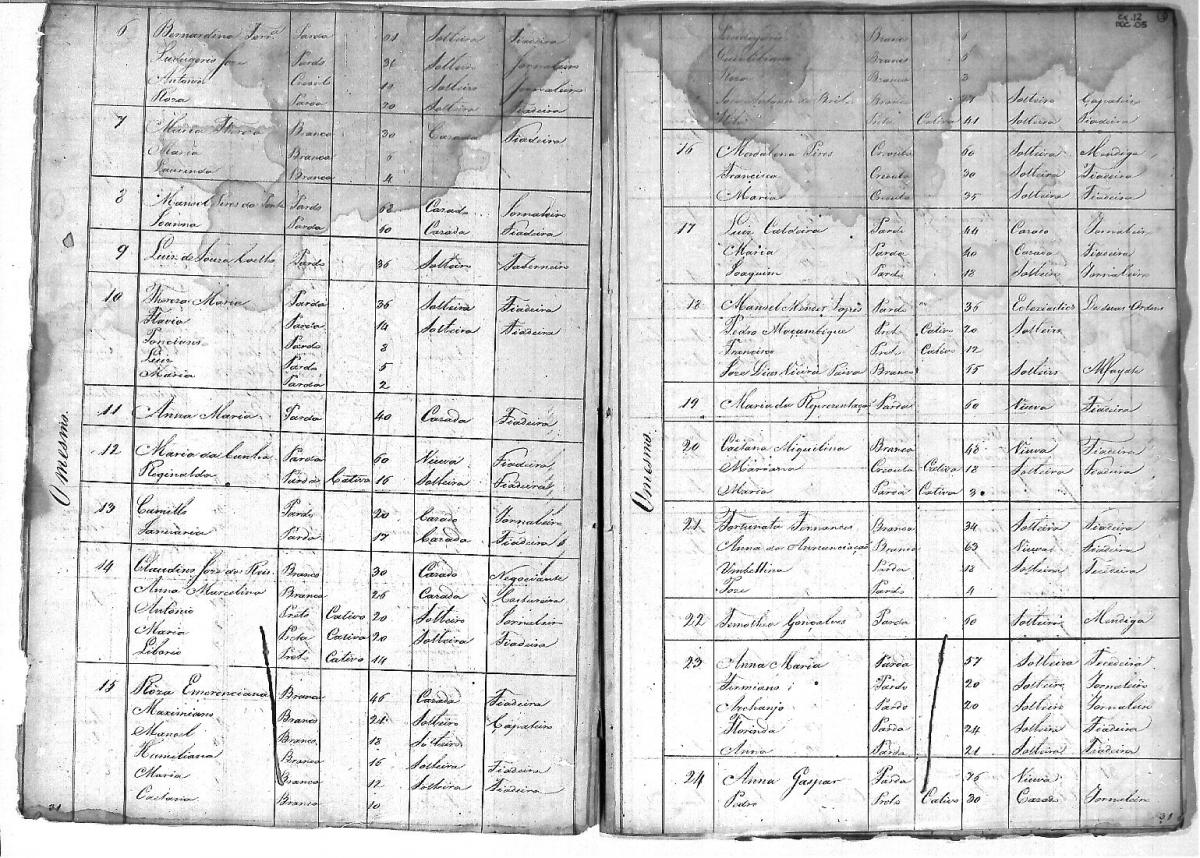 6 Bernardina Ferr.ª Parda 21 Solteira Fiadeira
José Pardo 31 Solteiro Jornaleiro
Antonio Creoulo 19 Solteiro Jornaleiro
Roza Parda 20 Solteira Fiadeira
7 Maria Thereza Branca 30 Cazada Fiadeira
Maria Branca 6
Laurinda Branca 4
8 Manoel Pires da Pardo 62 Cazado Jornaleiro
Joanna Parda 40 Cazada Fiadeira
9 Luiz de Souza Coelho Pardo 36 Solteiro Taberneiro
10 Thereza Maria Parda 36 Solteira Fiadeira
Flavia Parda 14 Solteira Fiadeira
Ponciano Pardo 8
Luiz Pardo 5
Maria Parda 2
11 Anna Maria Parda 40 Cazada Fiadeira
12 Maria da Cunha Parda 60 Viuva Fiadeira
Reginalda Parda Cativa 16 Solteira Fiadeira
13 Camillo Pardo 20 Cazado Jornaleiro
Januaria Parda 17 Cazada Fiadeira
14 Claudino José dos Reis Branco 30 Cazado Negociante
Anna Marcolina Branca 26 Cazada Costureira
Antonio Preto Cativo 20 Solteiro Jornaleiro
Maria Preta Cativa 20 Solteira Fiadeira
Liborio Preto Cativo 14
15 Roza Emerenciana Branca 46 Cazada Fiadeira
Maximiano Branco 24 Solteiro Çapateiro
Manoel Branco 18 Solteiro
Humiliana Branca 16 Solteira Fiadeira
Maria Branca 12 Solteira Fiadeira
Caetana Branca 10
O mesmo.
31
Cx. 12
Doc. 05
Branco 6
Quintiliano Branco 5
Roza Branca 3
Branco 27 Solteiro Çapateiro
Preta Cativa 41 Solteira Fiadeira
16 Magdalena Pires Creoula 60 Solteira Mendiga
Francisca Creoula 30 Solteira Fiadeira
Maria Creoula 35 Solteira Fiadeira
17 Luiz Caldeira Pardo 44 Cazado Jornaleiro
Maria Parda 40 Cazada Fiadeira
Joaquim Pardo 18 Solteiro Jornaleiro
18 Manoel Nunes Lopes Pardo 36 Eclesiastico De duas Ordens
Pedro Moçambique Preto Cativo 20 Solteiro
Francisco Preto Cativo 12
Jose Dias Vieira Paiva Branco 45 Solteiro Alfayate
19 Maria da Representação Parda 60 Viuva Fiadeira
20 Caetana Miquilina Branca 48 Viuva Fiadeira
Marianna Creoula Cativa 18 Solteira Fiadeira
Maria Parda Cativa 3
21 Fortunata Fernandes Branca 34 Solteira Fiadeira
Anna da Annunciação Branca 63 Viuva Fiadeira
Umbellina Parda 18 Solteira Teceleira
Jose Pardo 4
22 Timothea Gonçalves Parda 60 Solteira Mendiga
23 Anna Maria Parda 57 Solteira Tecedeira
Firmiano Pardo 20 Solteiro Jornaleiro
Archanjo Pardo 20 Solteiro Jornaleiro
Florinda Parda 24 Solteira Fiadeira
Anna Parda 21 Solteira Fiadeira
24 Anna Gaspar Parda 76 Viuva
Pedro Preto Cativo 30 Cazado Jornaleiro
O mesmo.
31